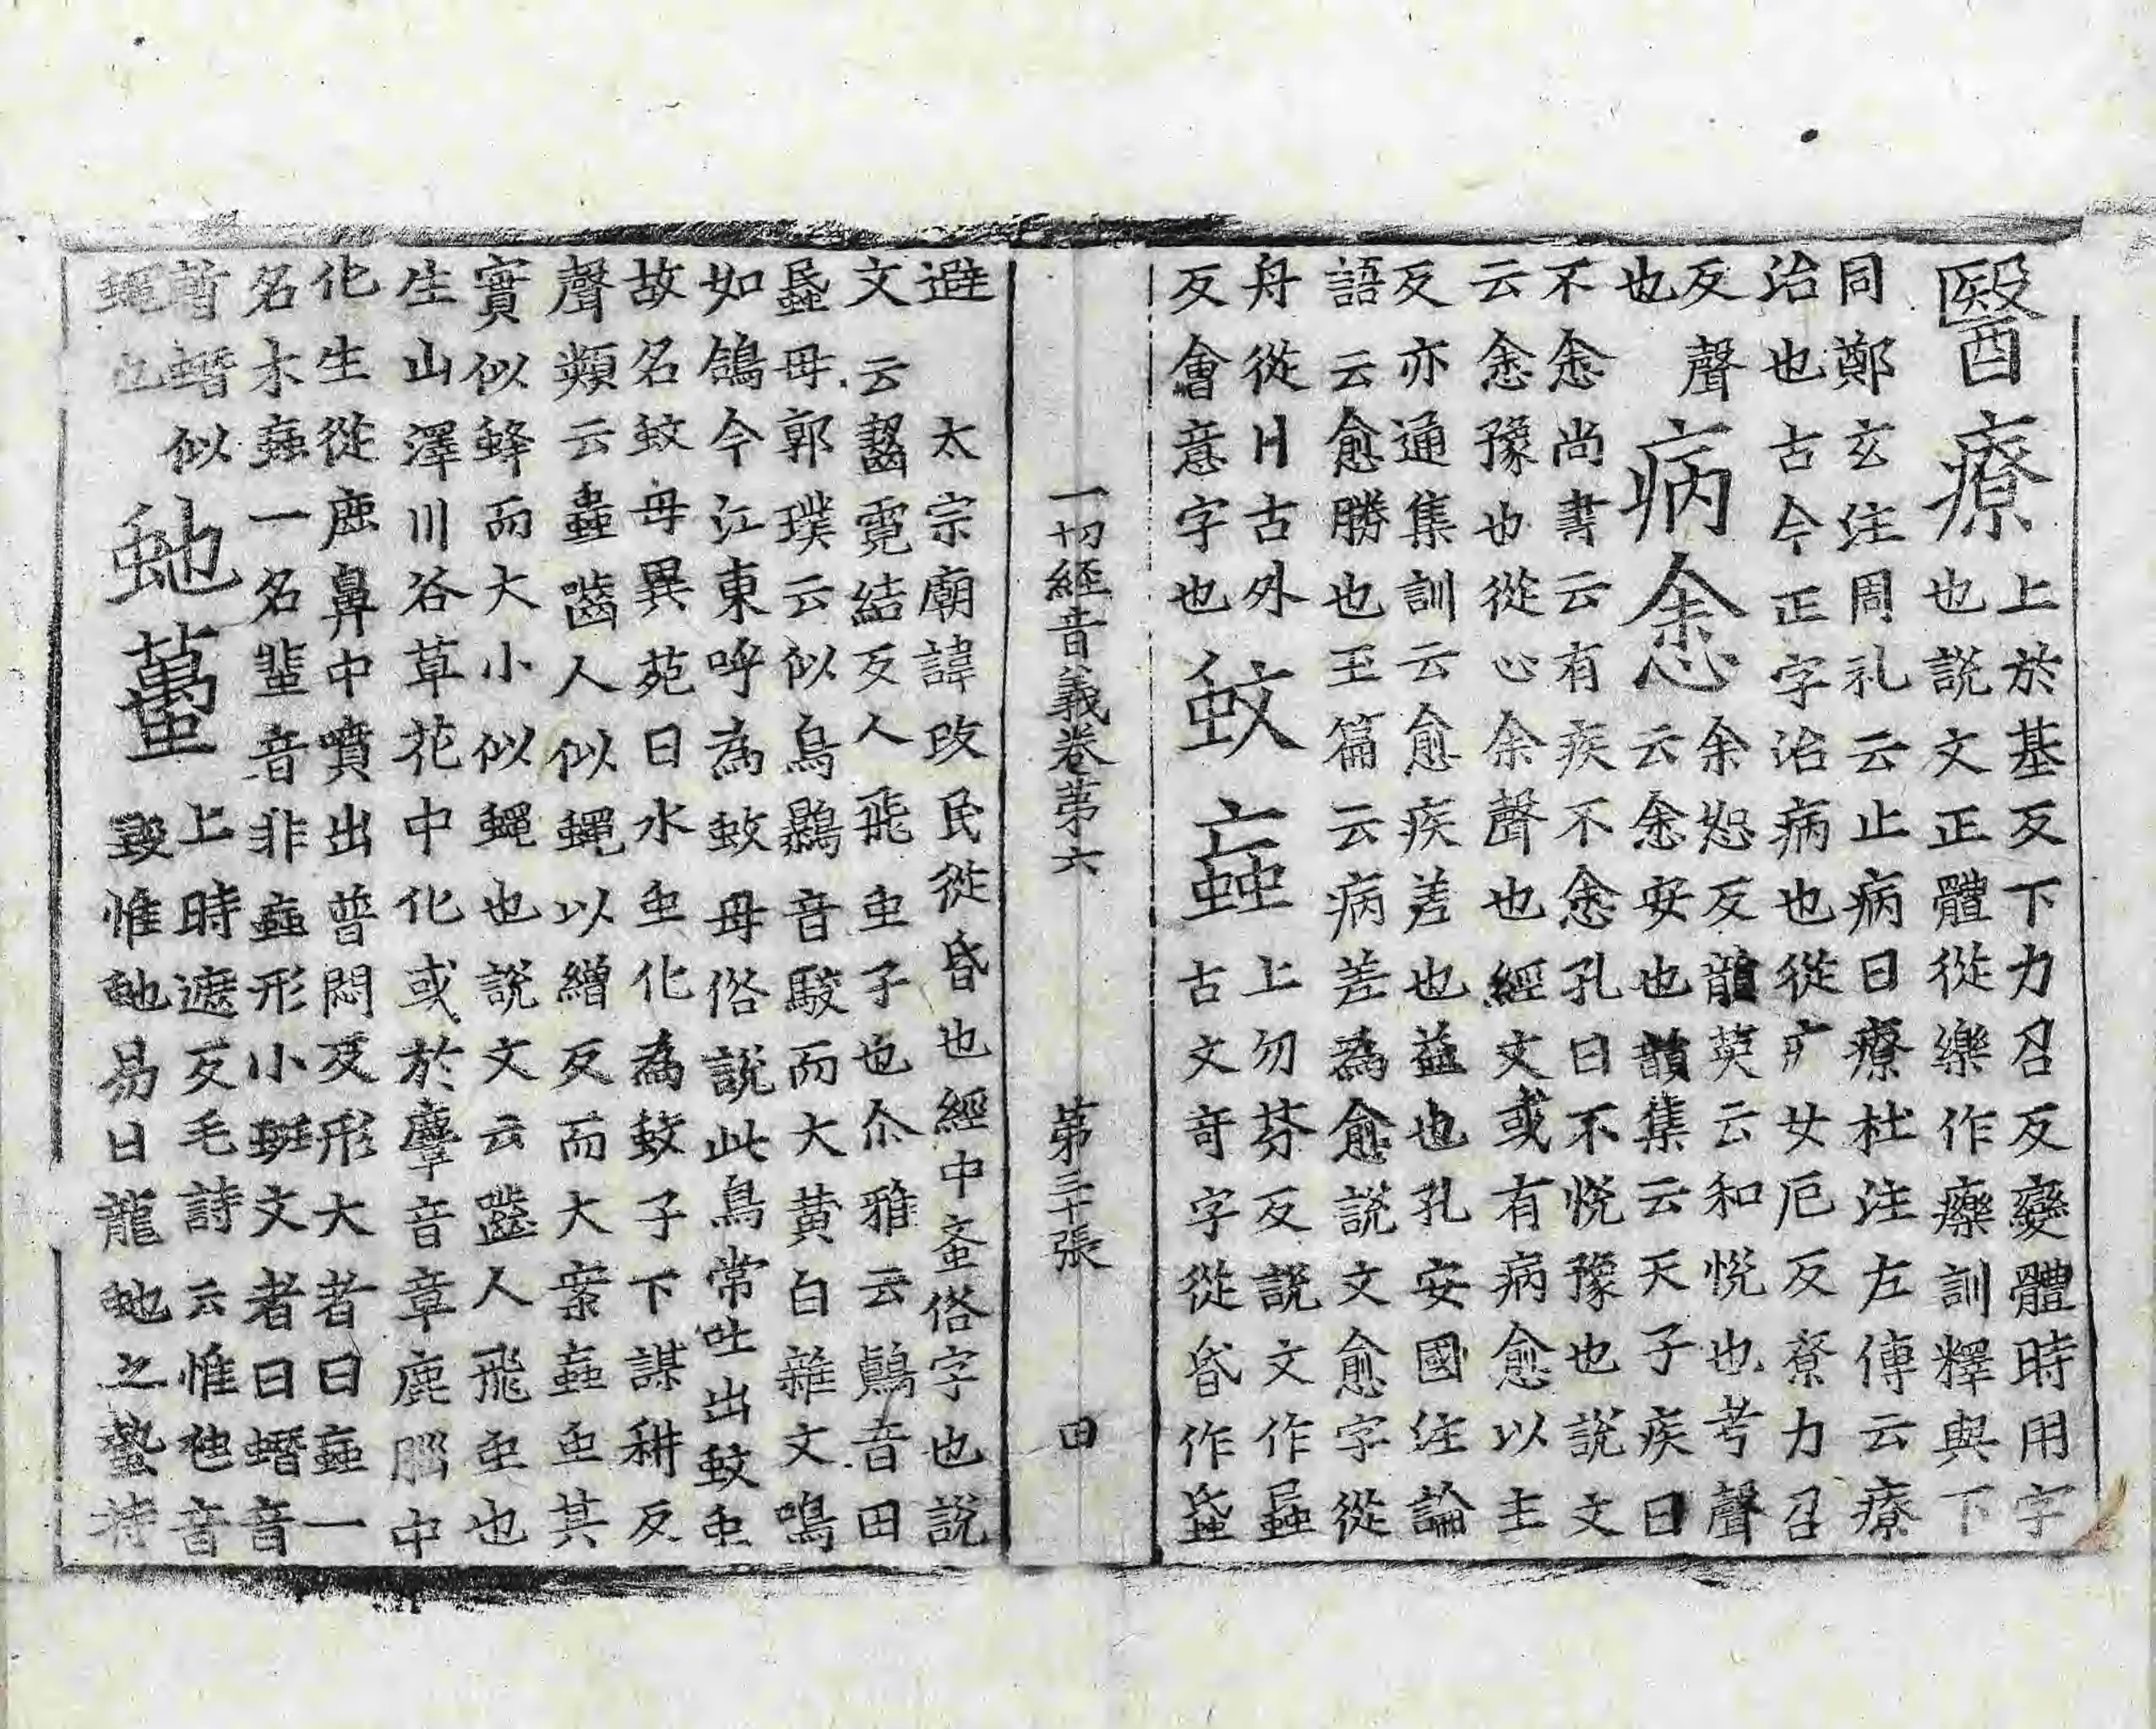 醫療
上於基反下力召反變體時用字
也說文正體從樂作𤻲訓釋與下
同鄭玄注周礼云止病曰療杜注左傳云療
治也古今正字治病也從疒女厄反尞力召
反聲
也
病悆
余恕反韻英云和悅也考聲
云悆安也韻集云天子疾曰
不悆尚書云有疾不悆孔曰不悅豫也說文
云悆豫也從心余聲也經文或有病愈以主
反亦通集訓云愈疾差也益也孔安國注論
語云愈勝也玉篇云病差為愈說文愈字從
舟從古外
反會意字也
蚊蝱
上勿芬反說文作蟁
古文奇字從昏作䘇
一切經音義卷第六 第三十張 田
避 太宗廟諱改民從昏也經中蚉俗字也說
文云齧霓結反人飛虫子也尒雅云鷏音田
蟁母郭璞云似烏音駮而大黃白雜文鳴
如鴿今江東呼為蚊母俗說此鳥常吐出蚊虫
故名蚊母異苑曰水虫化為蚊子下謀耕反
聲類云蝱嚙人似蠅以繒反而大案蝱虫其
實似蜂而大小似蠅也說文云齧人飛虫也
生山澤川谷草花中化或於麞音章鹿腦中
化生從鹿鼻中噴出普悶反形大者曰蝱一
名木蝱一名蜚音非蝱形小斑文者曰蠺音
暫蠺似
蠅也
虵䘍
上時遮反毛詩云惟虺音
毀惟虵易曰龍虵之蟄持